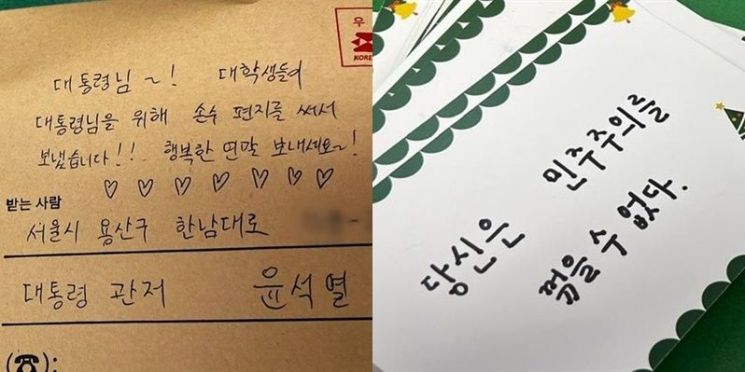 우
KORE
대통령님~! 대학생들이
대통령님을 위해 손수 편지를 써서
보냈습니다!! 행복한 연말 보내세요~!
♡ ♡ ♡ ♡ ♡ ♡ ♡
받는 사람
서울시 용산구 한남대로
대통령 관저 윤석열
(☎):
당신은 민주주의를
꺾을 수 없다.